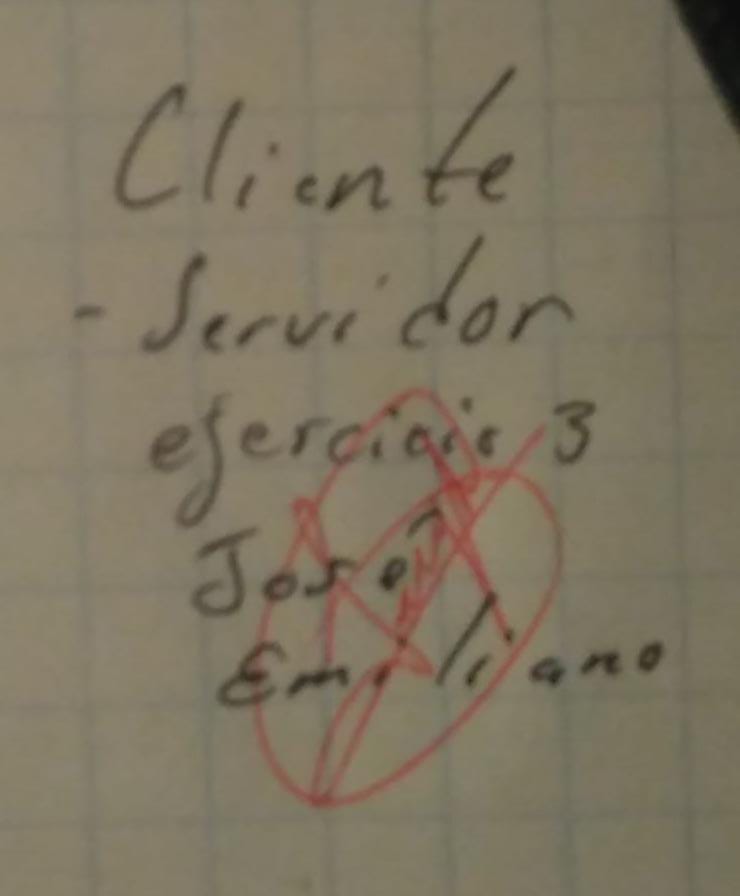 Cliente
- Servidor
ejercicio 3
José
Emiliano